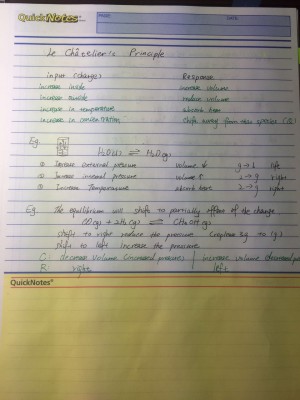 QuickNotes
NAME:
DATE:
Le Châtelier's Principle
input (change) Response
increase inside increase volume
increase outside reduce volume
increase in temperature absorb heat
increase in concentration shift away from that species (Q)
Eg.
H₂O(l) ⇌ H₂O(g)
① Increase external pressure Volume ↓ g→l left
② Increase internal pressure Volume ↑ l→g right
③ Increase Temperature Absorb heat l→g right
Eg. the equilibrium will shift to partially offset of the change
CO(g) + 2H₂(g) ⇌ CH₃OH(g)
shift to right reduce the pressure 3g to (g)
shift to left increase the pressure
C: decrease volume (increased pressure) | increase volume (decreased
R: right left
QuickNotes®